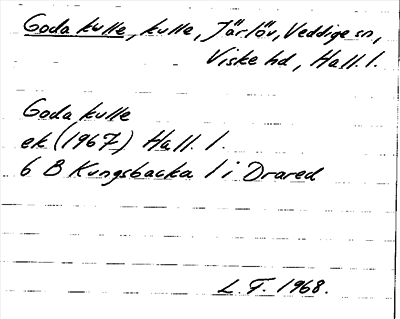 Goda kulle, kulle, Järlöv, Veddige sn,
Viske hd, Hall. l.
Goda kulle
ek (1967) Hall. l.
6 B Kungsbacka l i Drared
L. F. 1968.